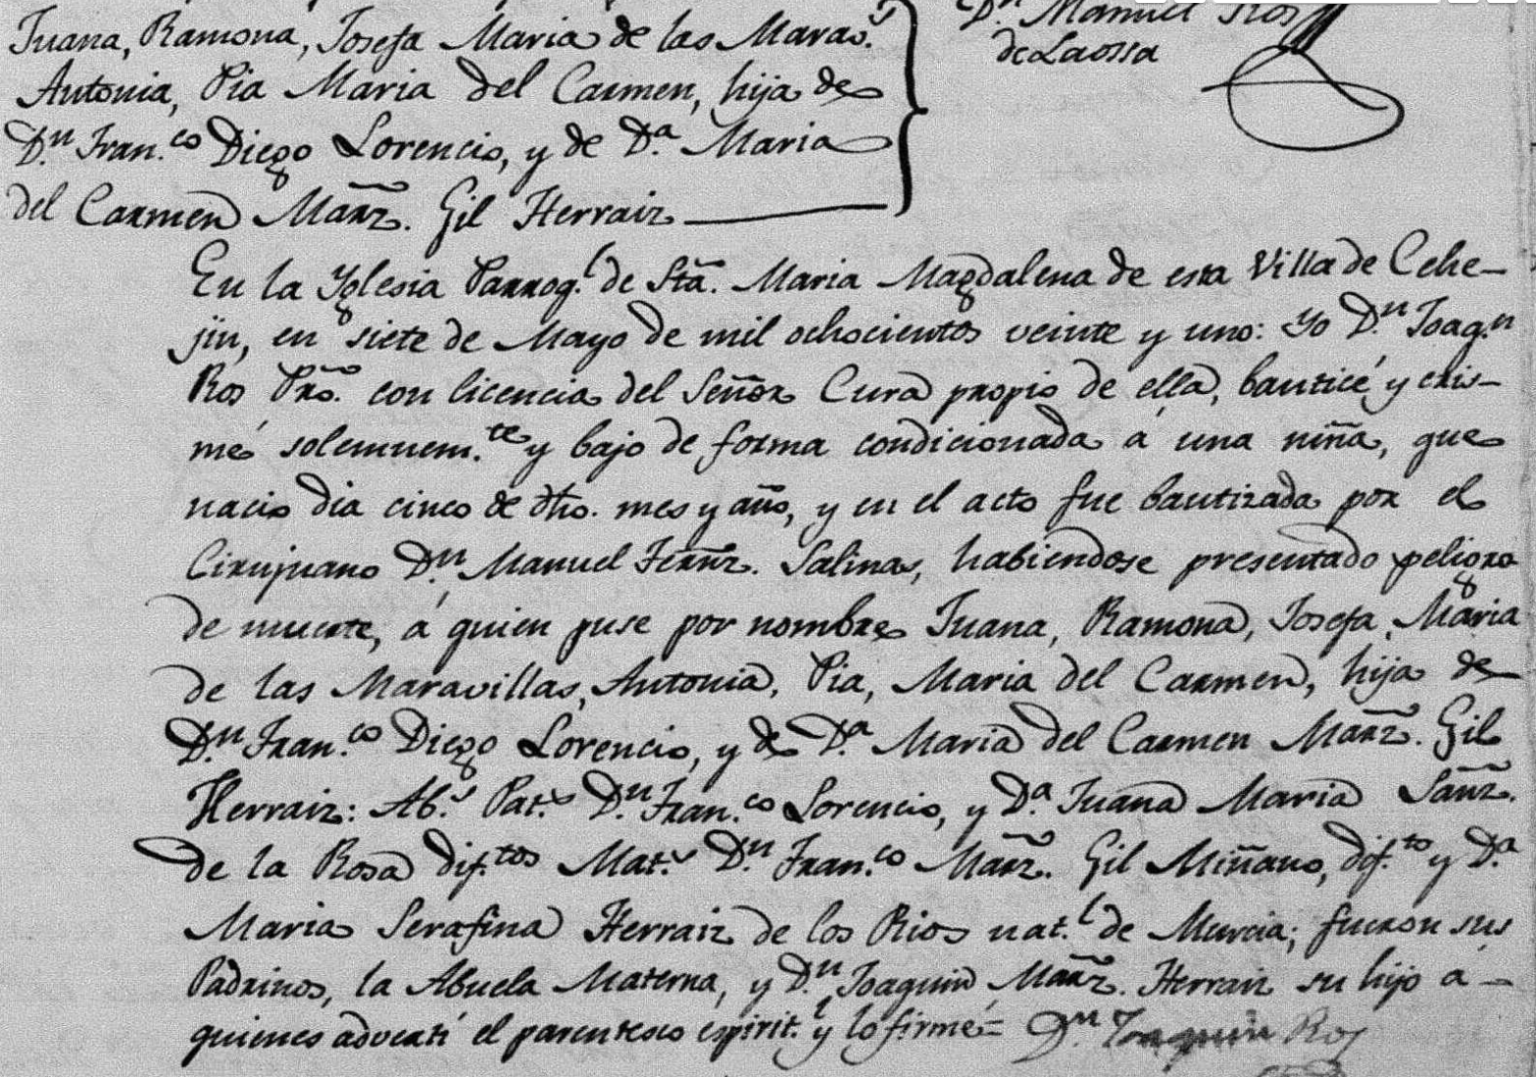 Juana, Ramona, Josefa Maria de las Maravs.
Antonia, Pia Maria del Carmen, hija de
Dn. Fran.co Diego Lorencio, y de Da. Maria
del Carmen Mãrz. Gil Herraiz
Dn. Manuel Ros
de Laossa
En la Yglesia Parroq.l de Stã. Maria Magdalena de esta Villa de Cehe-
jin, en siete de Mayo de mil ochocientos veinte y uno: Yo Dn. Joaq.n
Ros Prõ. con licencia del Señor Cura propio de ella, bauticé y cris-
mé solemnem.te y bajo de forma condicionada á una niña, que
nacio dia cinco de dho. mes y año, y en el acto fue bautizada por el
Cirujuano Dn. Manuel Fernz. Salinas, habiendose presentado peligro
de muerte, á quien puse por nombre Juana, Ramona, Josefa, Maria
de las Maravillas, Antonia, Pia, Maria del Carmen, hija de
Dn. Fran.co Diego Lorencio, y de Da. Maria del Carmen Mãrz. Gil
Herraiz: Ab.s Pat.s Dn. Fran.co Lorencio, y Da. Juana Maria Sãnz.
de la Rosa dif.tos Mat.s Dn. Fran.co Mãrz. Gil Miñano, dif.to y Da.
Maria Serafina Herraiz de los Rios nat.l de Murcia; fueron sus
Padrinos, la Abuela Materna, y Dn. Joaquin Mãrz. Herraiz su hijo á-
quienes advertí el parentesco espirit.l y lo firmé = Dn. Joaquin Ros